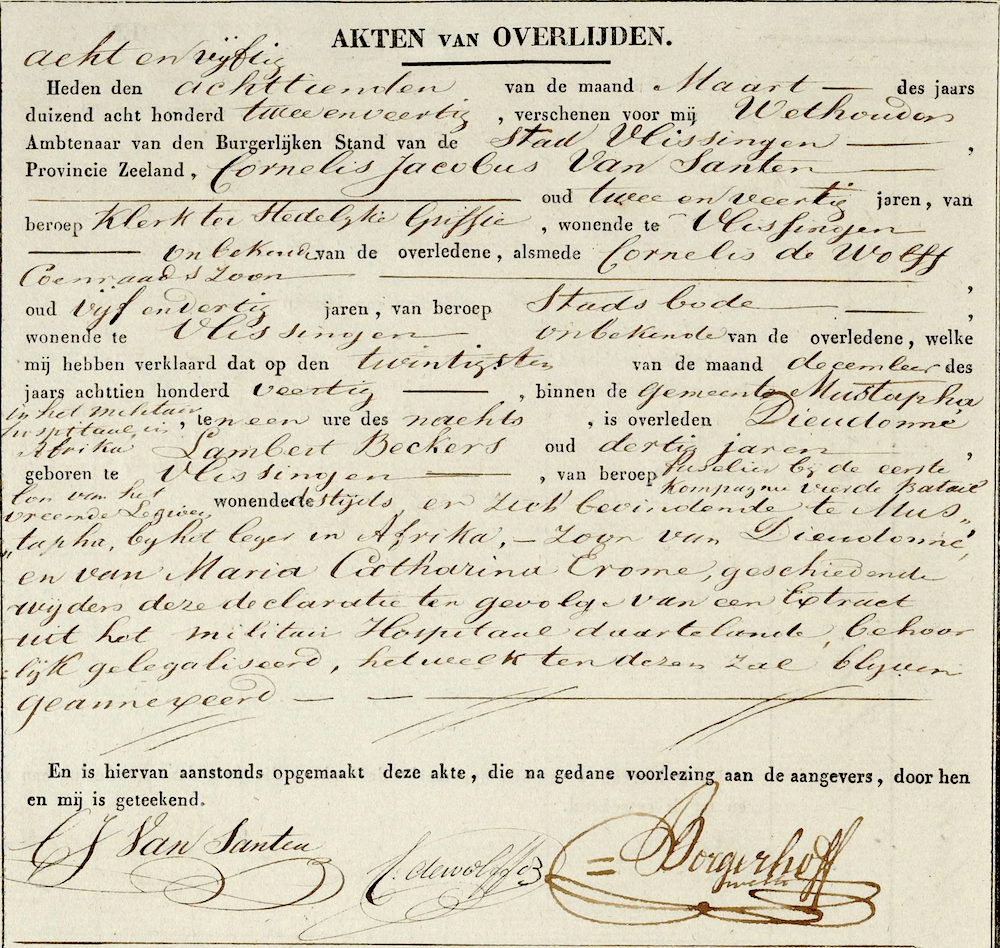 AKTEN VAN OVERLIJDEN.
acht en vijftig
Heden den achttienden van de maand Maart — des jaars
duizend acht honderd twee en veertig, verschenen voor mij Wethouder
Ambtenaar van den Burgerlijken Stand van de Stad Vlissingen —,
Provincie Zeeland, Cornelis Jacobus Van Santen —
— oud twee en veertig jaren, van
beroep Klerk ter Stedelyke Griffie, wonende te Vlissingen
— onbekend van de overledene, alsmede Cornelis de Wolff
Coenraads Zoon — ,
oud vijf en dertig jaren, van beroep Stads bode — ,
wonende te Vlissingen — onbekende van de overledene, welke
mij hebben verklaard dat op den twintigsten van de maand december des
jaars achttien honderd veertig —, binnen de gemeente Mustapha
in het militair hospitaal in, ten een ure des nachts, is overleden Dieudonné
Afrika, Lambert Beckers oud dertig jaren,
geboren te Vlissingen —, van beroep fuselier bij de eerste
kompagnie vierde Batail
lon van het vreemde Legioen, wonende destijds, en zich bevindende te Mus„
„tapha, by het leger in Afrika, — Zoon van Dieudonné,
en van Maria Catharina Erome, geschiedende
wijders deze declaratie ten gevolge van een Extract
uit het militair Hospitaal daartelande, behoor
lijk gelegaliseerd, hetwelk ten dezen zal blyven
geannexeerd — — —
En is hiervan aanstonds opgemaakt deze akte, die na gedane voorlezing aan de aangevers, door hen
en mij is geteekend.
CJ Van Santen
C. de Wolff Cz
= Borgerhoff
weth